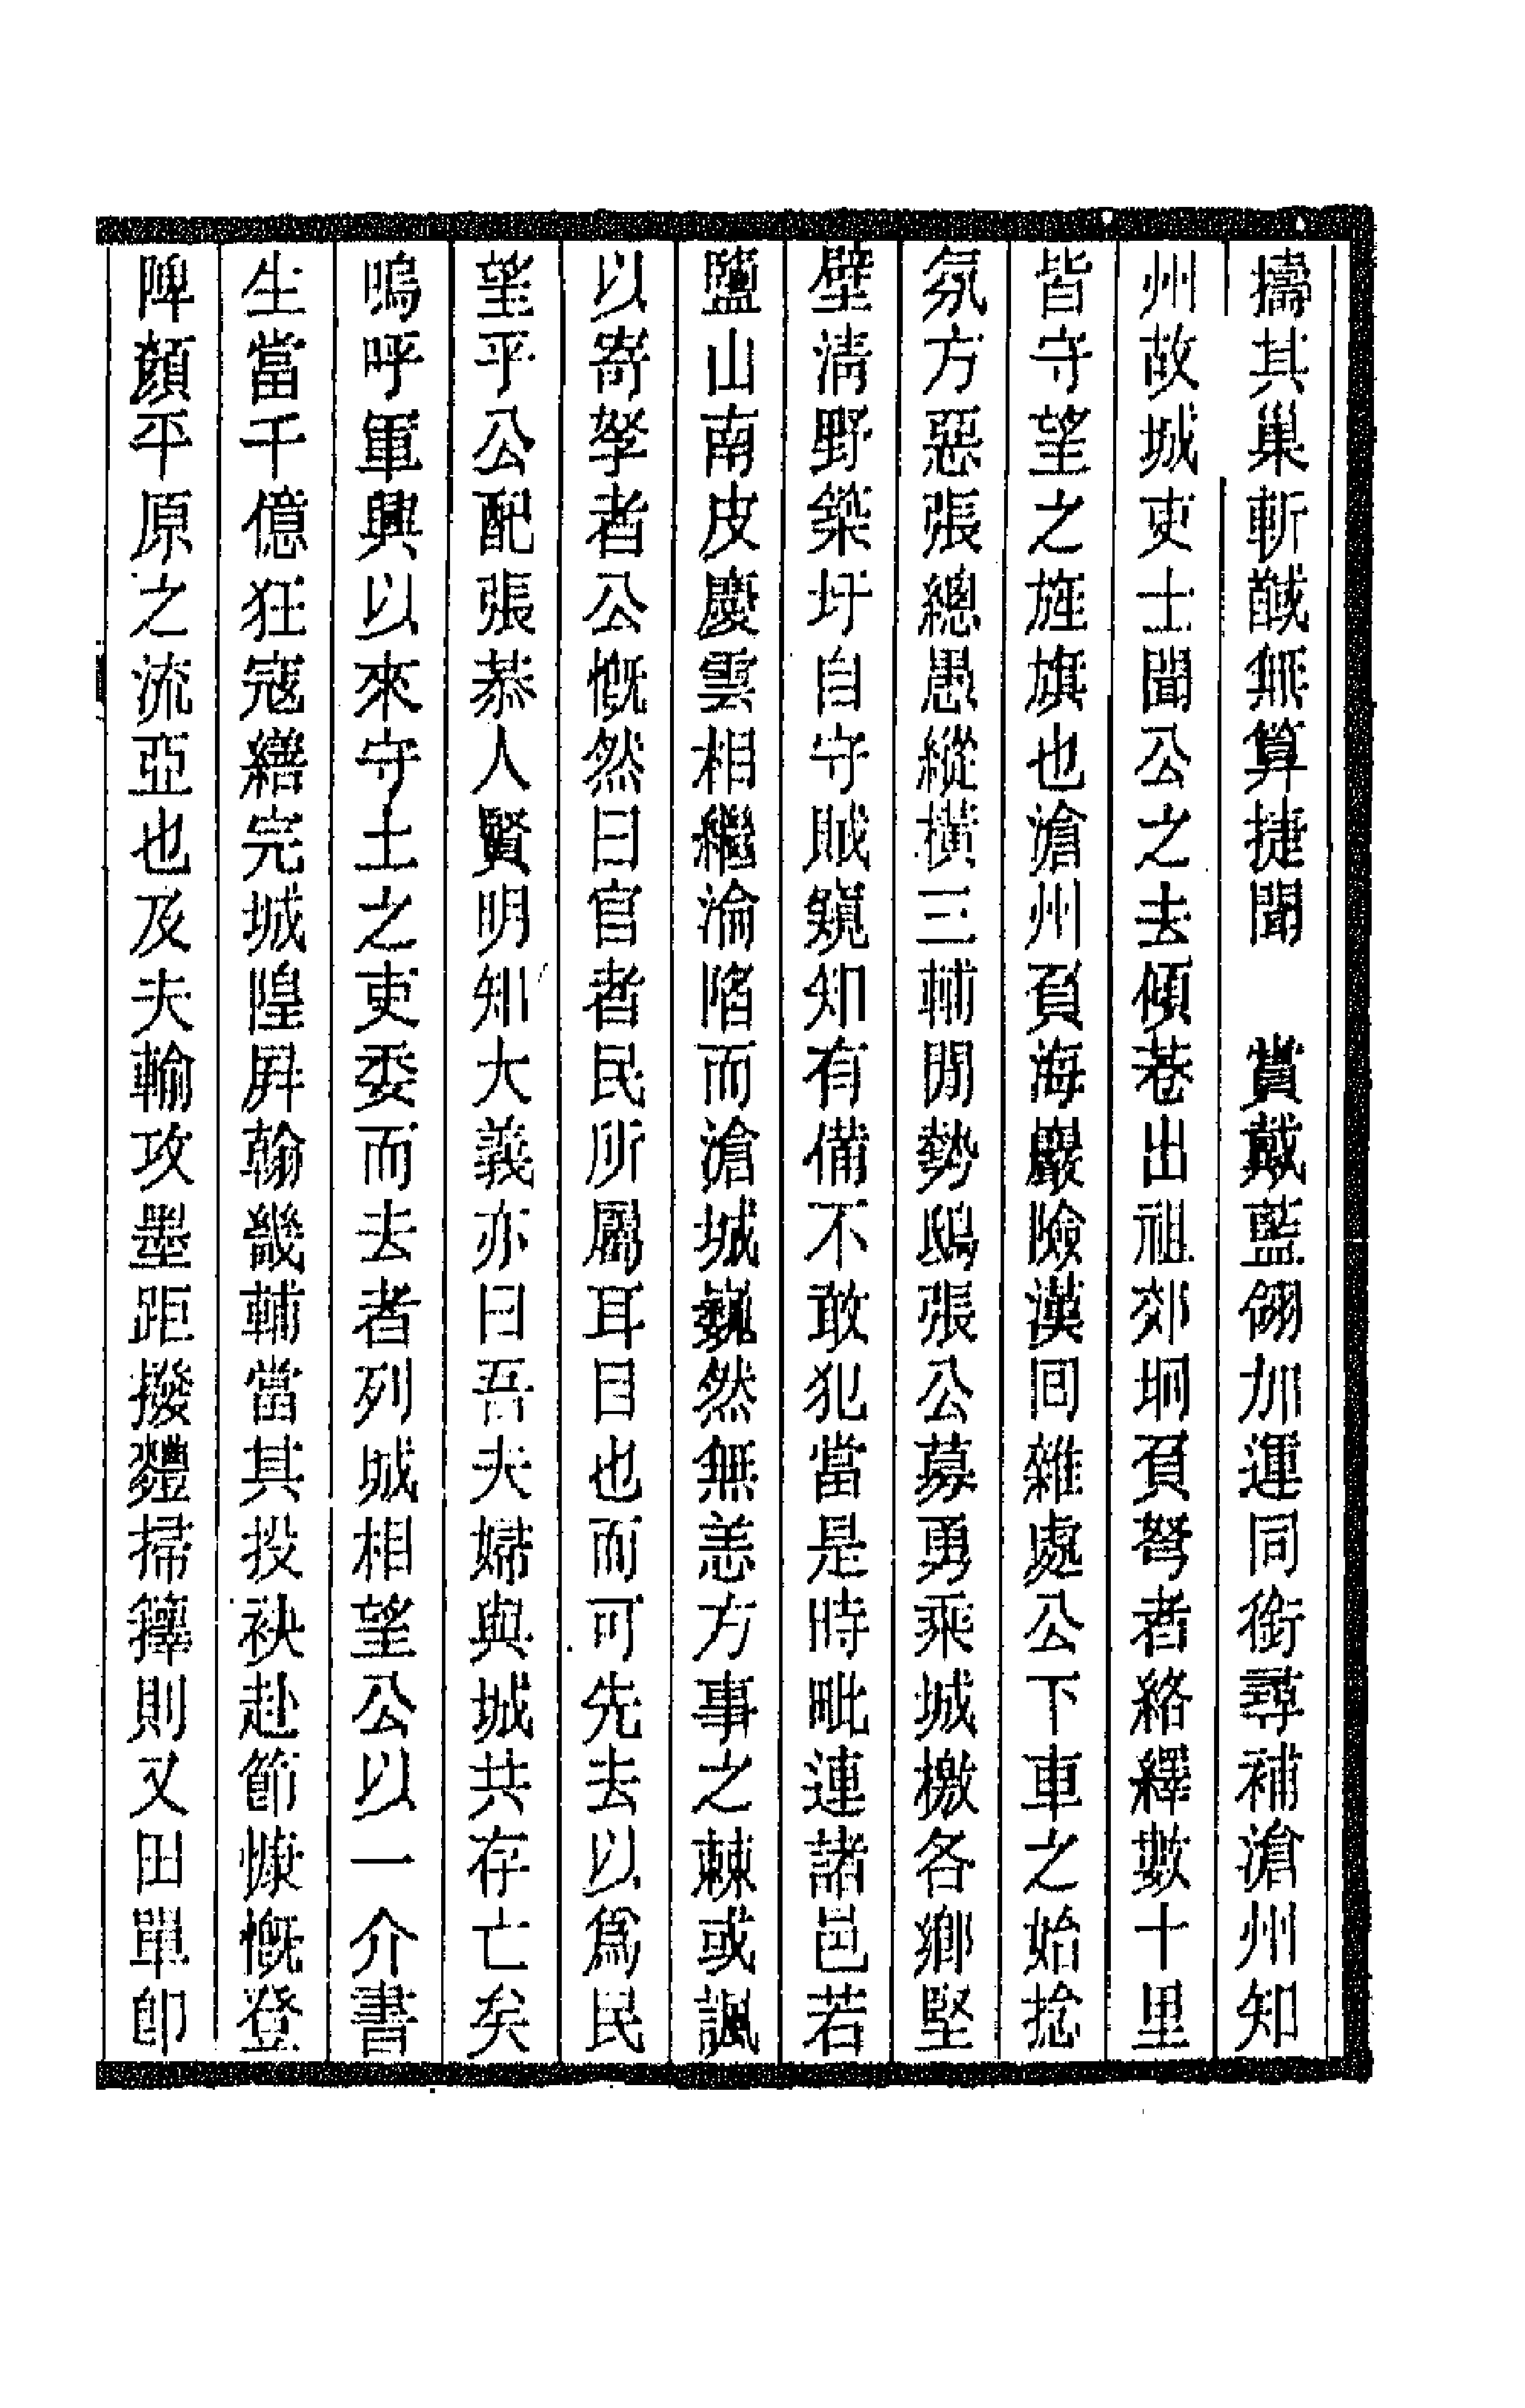 擣其巢斬馘無算捷聞　賞戴藍翎加運同銜尋補滄州知
州故城吏士聞公之去傾巷出祖郊坰負弩者絡繹數十里
皆守望之旌旗也滄州負海巖險漢回雜處公下車之始捻
氛方惡張總愚縱橫三輔閒勢鴟張公募勇乘城檄各鄉堅
壁淸野築圩自守賊窺知有備不敢犯當是時毗連諸邑若
鹽山南皮慶雲相繼淪陷而滄城巍然無恙方事之棘或諷
以寄孥者公慨然曰官者民所屬耳目也而可先去以爲民
望乎公配張恭人賢明知大義亦曰吾夫婦與城共存亡矣
嗚呼軍興以來守土之吏委而去者列城相望公以一介書
生當千億狂寇繕完城隍屛翰畿輔當其投袂赴節慷慨登
陴顏平原之流亞也及夫輸攻墨距撥䵄掃籜則又田單卽